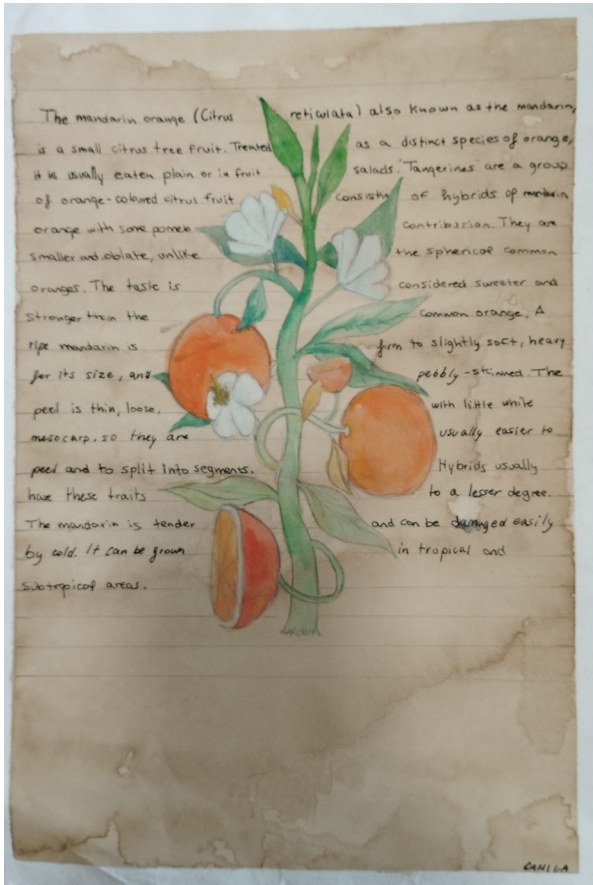 The mandarin orange (Citrus reticulata) also known as the mandarin,
is a small citrus tree fruit. Treated as a distinct species of orange,
it is usually eaten plain or in fruit salads. Tangerines are a group
of orange-coloured citrus fruit consisting of hybrids of mandarin
orange with some pomelo contribution. They are
smaller and oblate, unlike the spherical common
oranges. The taste is considered sweeter and
stronger than the common orange. A
ripe mandarin is firm to slightly soft, heavy
for its size, and pebbly-skinned. The
peel is thin, loose, with little white
mesocarp. so they are usually easier to
peel and to split into segments. Hybrids usually
have these traits to a lesser degree.
The mandarin is tender and can be damaged easily
by cold. It can be grown in tropical and
subtropical areas.
CANILA